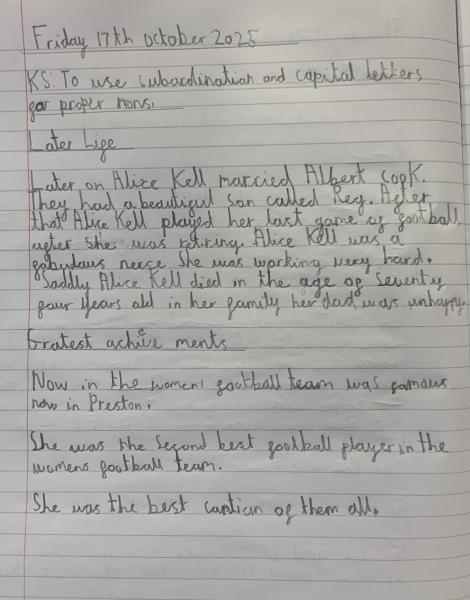 Friday 17th October 2025
KS: To use subordination and capital letters
for proper nons.
Later Life
Later on Alice Kell married Albert cook.
They had a beautiful son called Reg. After
that Alice Kell played her last game of football
after she was retiring. Alice Kell was a
fabulous nerse she was working very hard.
Saddly Alice Kell died in the age of Seventy
four years old in her family her dad was unhappy.
Gratest achieve ments
Now in the womens football team was famous
now in Preston.
She was the second best football player in the
womens football team.
She was the best caption of them all.